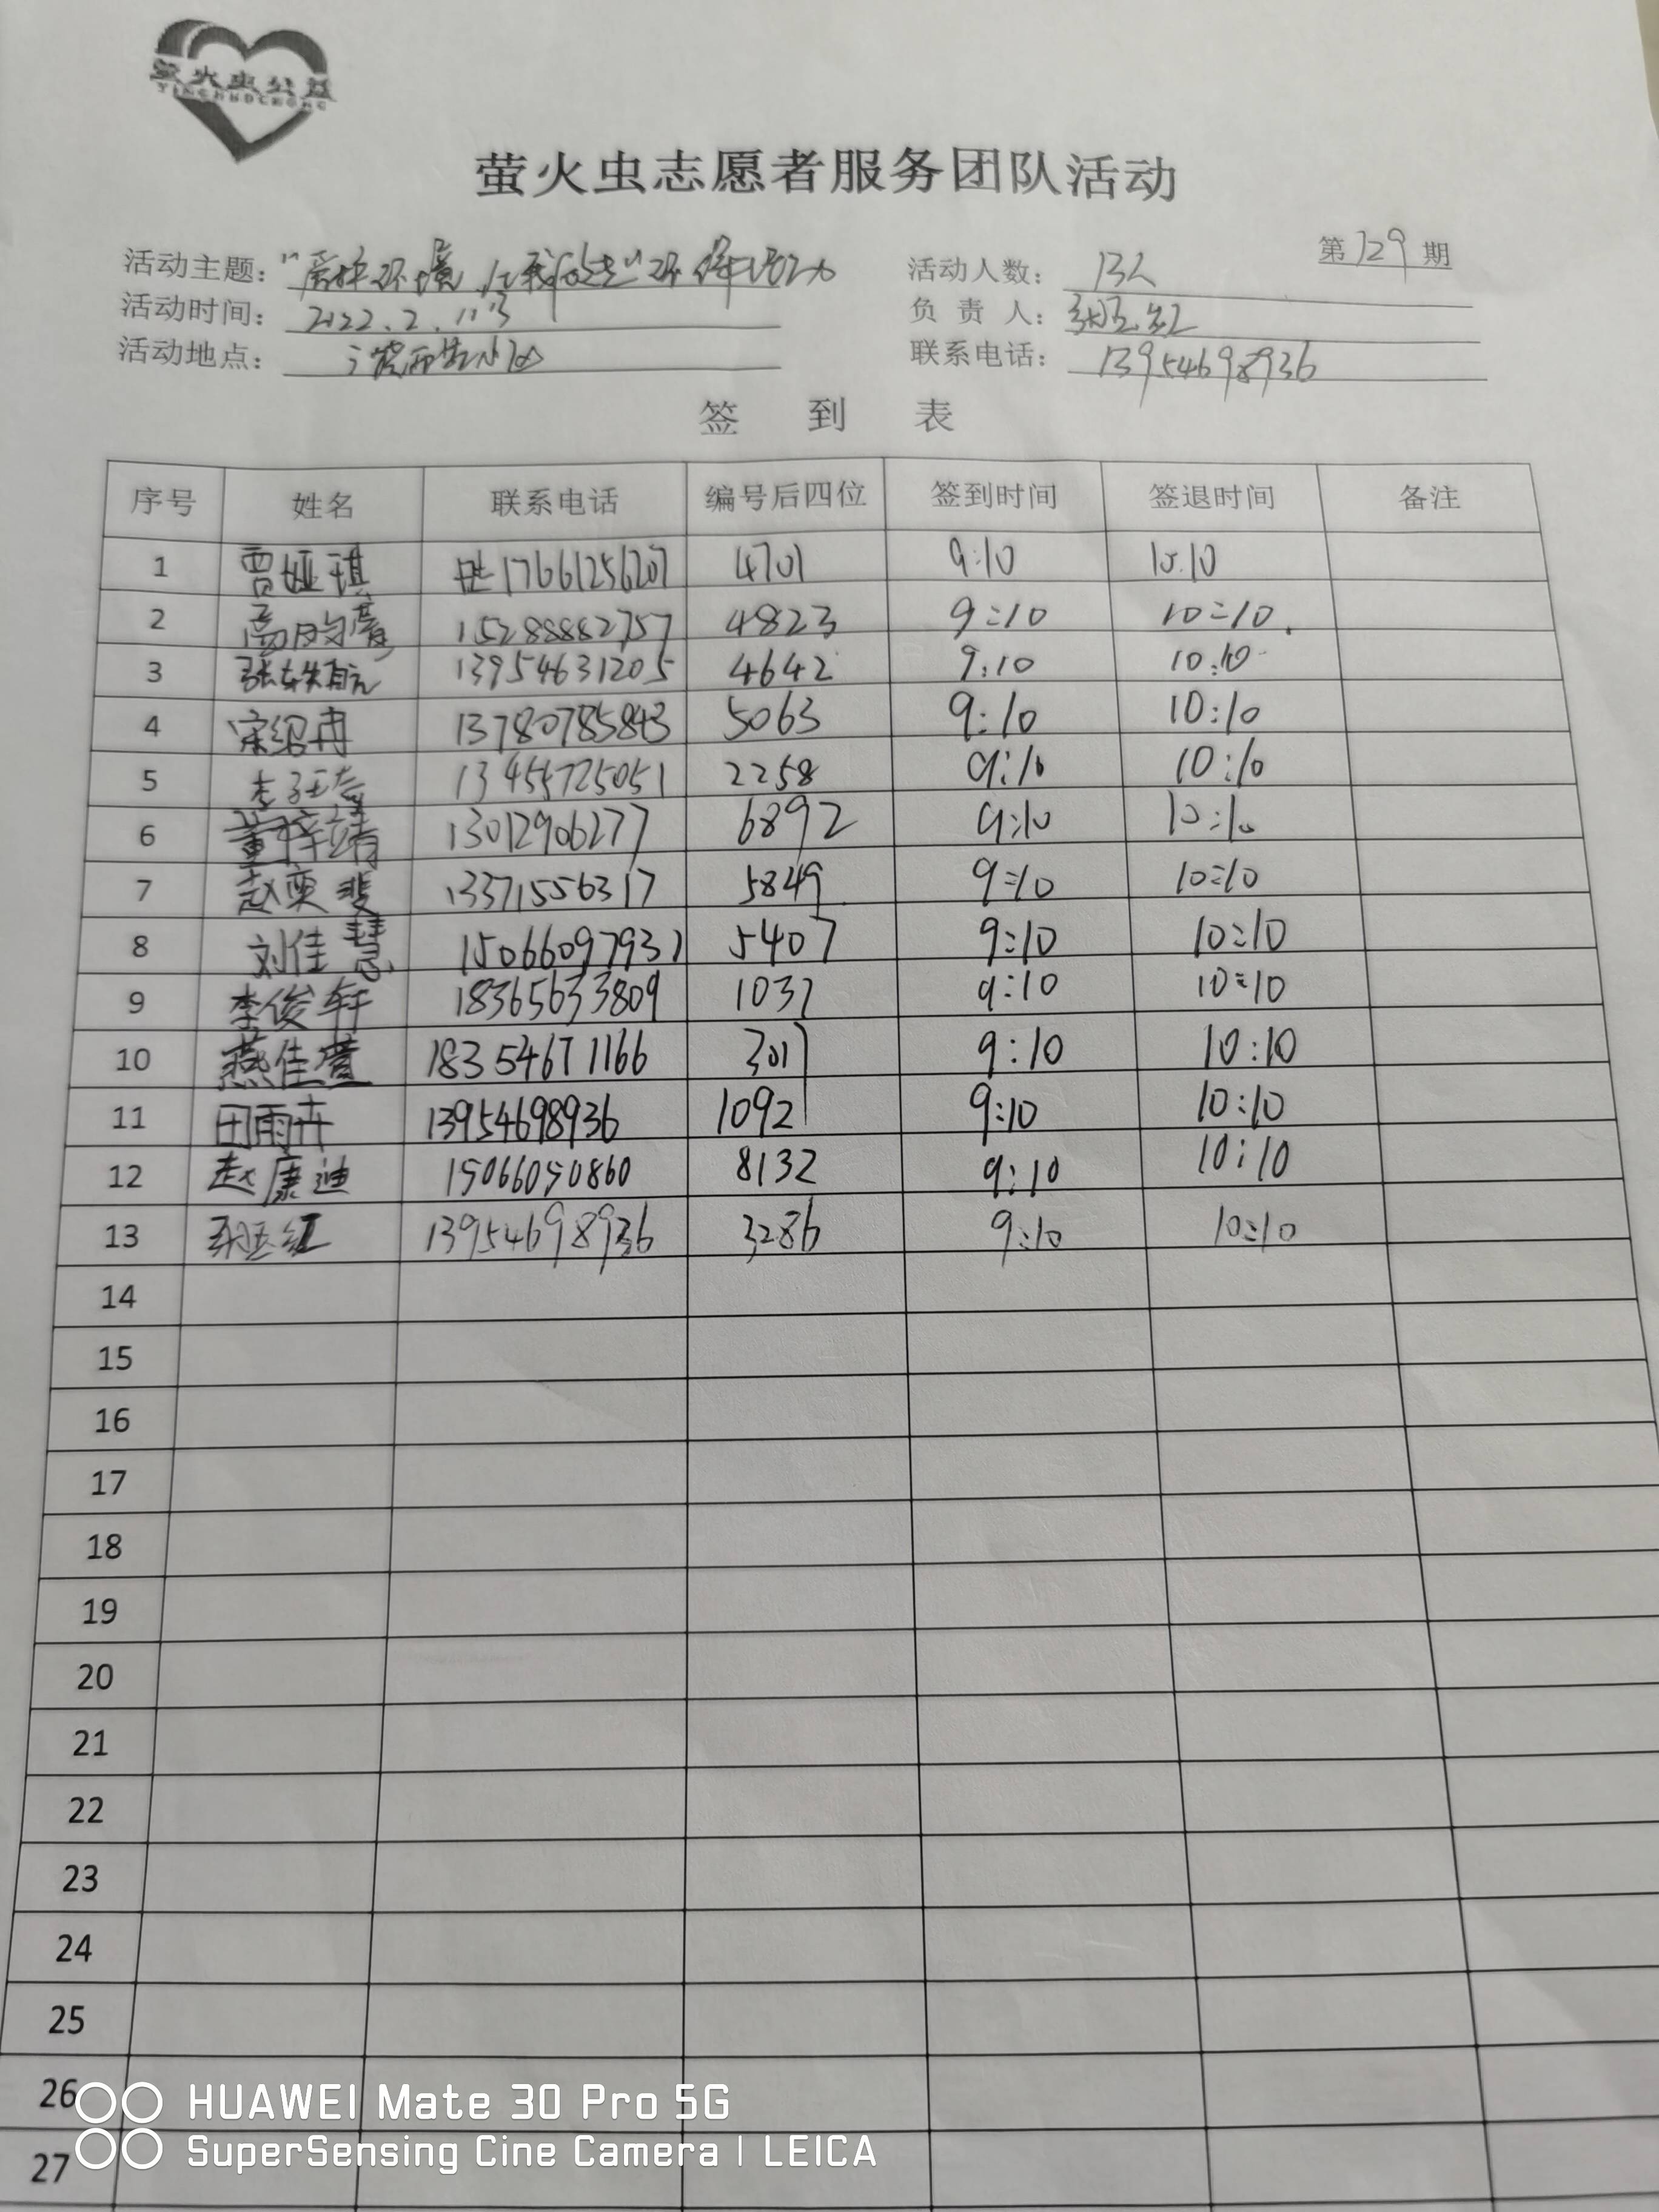 萤火虫公益
YINGHUOCHONG
萤火虫志愿者服务团队活动
第129期
活动主题："爱护环境,从我做起"环保活动 活动人数：13人
活动时间：2022.2.11 负责人：红
活动地点： 联系电话：13954698936
签到表
序号 姓名 联系电话 编号后四位 签到时间 签退时间 备注
1 贾娅琪 17661256207 4701 9:10 10:10
2 高 15288882757 4823 9:10 10:10
3 张轶航 13954631205 4642 9:10 10:10
4 宋绍冉 13780785843 5063 9:10 10:10
5 李 13455725051 2258 9:10 10:10
6 董梓靖 13012906277 6892 9:10 10:10
7 赵奕斐 13371556317 5849 9:10 10:10
8 刘佳慧 15066097931 5407 9:10 10:10
9 李俊轩 18365633809 1031 9:10 10:10
10 燕佳萱 18354671166 3017 9:10 10:10
11 田雨卉 13954698936 1092 9:10 10:10
12 赵康迪 15066050860 8132 9:10 10:10
13 红 13954698936 3286 9:10 10:10
14
15
16
17
18
19
20
21
22
23
24
25
26
27
HUAWEI Mate 30 Pro 5G
SuperSensing Cine Camera | LEICA